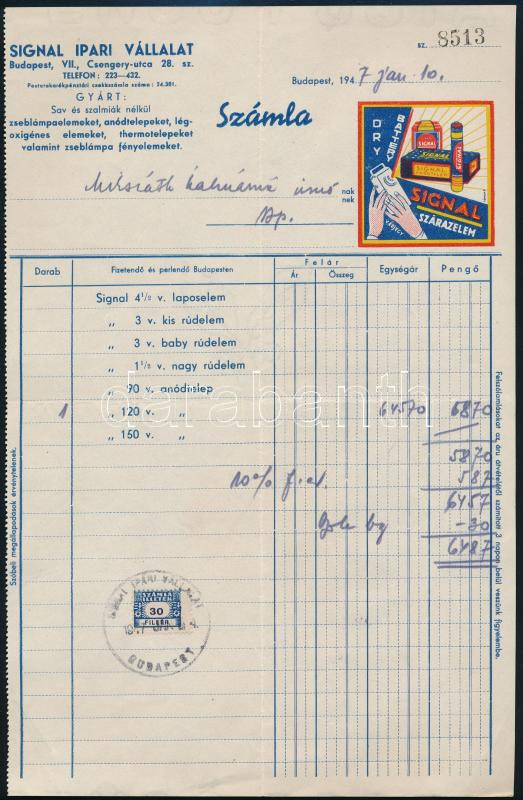 SIGNAL IPARI VÁLLALAT
Budapest, VII., Csengery-utca 28. sz.
TELEFON: 223—432.
Postatakarékpénztári csekkszámla száma: 24.381.
GYÁRT:
Sav és szalmiák nélkül
zseblámpaelemeket, anódtelepeket, lég-
oxigénes elemeket, thermotelepeket
valamint zseblámpa fényelemeket.
sz. 8513
Budapest, 1947 jan. 10.
Számla
DRY BATTERY
SIGNAL
SIGNAL
SZÁRAZELEM
VÉDJEGY
Mikszáth Kálmánné úrnő nak
nek
Bp.
Darab
Fizetendő és perlendő Budapesten
Felár
Ár
Összeg
Egységár
Pengő
Signal 4 1/2 v. laposelem
„ 3 v. kis rúdelem
„ 3 v. baby rúdelem
„ 1 1/2 v. nagy rúdelem
„ 90 v. anódtelep
1 „ 120 v. „ 5870
„ 150 v. „
5870
10% f.a. 587
6457
bg -30
6487
SIGNAL IPARI VÁLLALAT
BUDAPEST
SZÁMLA
ILLETÉK
30
FILLÉR
Szóbeli megállapodások érvénytelenek.
Felszólamlásokat az áru átvételétől számított 3 napon belül veszünk figyelembe.
darabanth